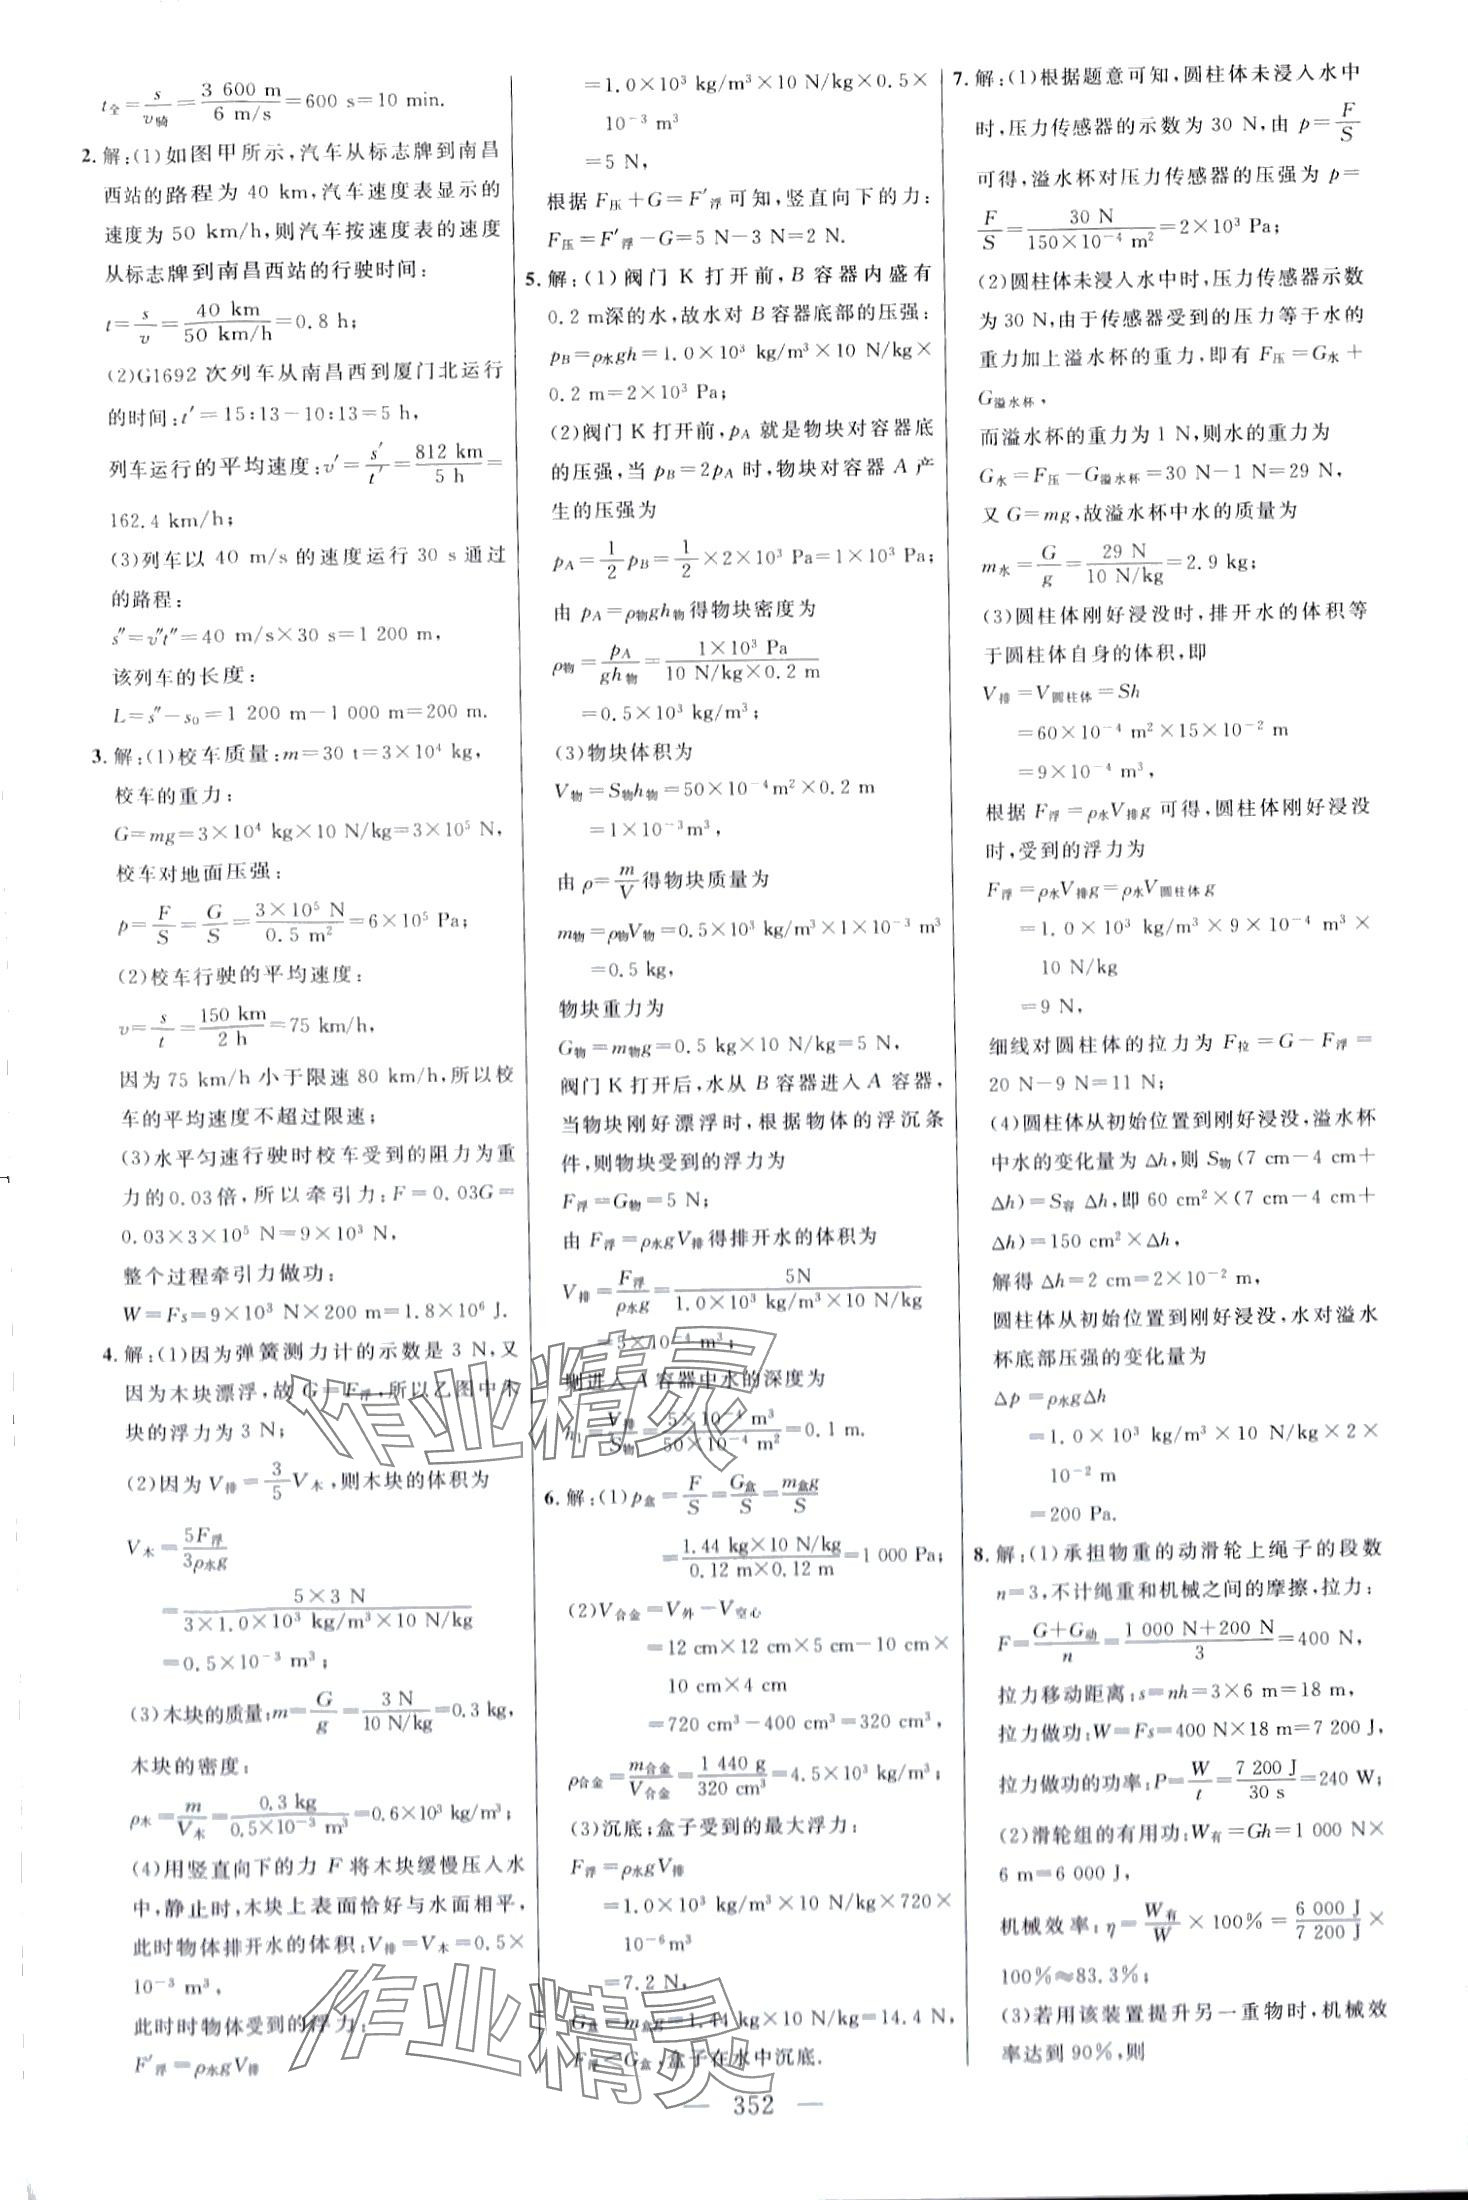 t全=s/v骑=3 600 m/6 m/s=600 s=10 min.
2. 解:(1)如图甲所示,汽车从标志牌到南昌
西站的路程为 40 km,汽车速度表显示的
速度为 50 km/h,则汽车按速度表的速度
从标志牌到南昌西站的行驶时间:
t=s/v=40 km/50 km/h=0.8 h;
(2)G1692 次列车从南昌西到厦门北运行
的时间:t′=15:13-10:13=5 h,
列车运行的平均速度:v′=s′/t′=812 km/5 h=
162.4 km/h;
(3)列车以 40 m/s 的速度运行 30 s 通过
的路程:
s″=v″t″=40 m/s×30 s=1 200 m,
该列车的长度:
L=s″-s₀=1 200 m-1 000 m=200 m.
3. 解:(1)校车质量:m=30 t=3×10⁴ kg,
校车的重力:
G=mg=3×10⁴ kg×10 N/kg=3×10⁵ N,
校车对地面压强:
p=F/S=G/S=3×10⁵ N/0.5 m²=6×10⁵ Pa;
(2)校车行驶的平均速度:
v=s/t=150 km/2 h=75 km/h,
因为 75 km/h 小于限速 80 km/h,所以校
车的平均速度不超过限速;
(3)水平匀速行驶时校车受到的阻力为重
力的0.03倍,所以牵引力:F=0.03G=
0.03×3×10⁵ N=9×10³ N,
整个过程牵引力做功:
W=Fs=9×10³ N×200 m=1.8×10⁶ J.
4. 解:(1)因为弹簧测力计的示数是 3 N,又
因为木块漂浮,故 G=F浮,所以乙图中木
块的浮力为 3 N;
(2)因为 V排=3/5 V木,则木块的体积为
V木=5F浮/3ρ水g
=5×3 N/3×1.0×10³ kg/m³×10 N/kg
=0.5×10⁻³ m³;
(3)木块的质量:m=G/g=3 N/10 N/kg=0.3 kg,
木块的密度:
ρ木=m/V木=0.3 kg/0.5×10⁻³ m³=0.6×10³ kg/m³;
(4)用竖直向下的力 F 将木块缓慢压入水
中,静止时,木块上表面恰好与水面相平,
此时物体排开水的体积:V排=V木=0.5×
10⁻³ m³,
此时时物体受到的浮力:
F′浮=ρ水gV排
=1.0×10³ kg/m³×10 N/kg×0.5×
10⁻³ m³
=5 N,
根据 F压+G=F′浮可知,竖直向下的力:
F压=F′浮-G=5 N-3 N=2 N.
5. 解:(1)阀门 K 打开前,B 容器内盛有
0.2 m深的水,故水对 B 容器底部的压强:
pB=ρ水gh=1.0×10³ kg/m³×10 N/kg×
0.2 m=2×10³ Pa;
(2)阀门 K 打开前,pA 就是物块对容器底
的压强,当 pB=2pA 时,物块对容器 A 产
生的压强为
pA=1/2 pB=1/2×2×10³ Pa=1×10³ Pa;
由 pA=ρ物gh物得物块密度为
ρ物=pA/gh物=1×10³ Pa/10 N/kg×0.2 m
=0.5×10³ kg/m³;
(3)物块体积为
V物=S物h物=50×10⁻⁴m²×0.2 m
=1×10⁻³m³,
由 ρ=m/V得物块质量为
m物=ρ物V物=0.5×10³ kg/m³×1×10⁻³ m³
=0.5 kg,
物块重力为
G物=m物g=0.5 kg×10 N/kg=5 N,
阀门 K 打开后,水从 B 容器进入 A 容器,
当物块刚好漂浮时,根据物体的浮沉条
件,则物块受到的浮力为
F浮=G物=5 N;
由 F浮=ρ水gV排得排开水的体积为
V排=F浮/ρ水g=5N/1.0×10³ kg/m³×10 N/kg
=5×10⁻⁴ m³;
则进入 A 容器中水的深度为
h₁=V排/S物=5×10⁻⁴ m³/50×10⁻⁴ m²=0.1 m.
6. 解:(1)p盒=F/S=G盒/S=m盒g/S
=1.44 kg×10 N/kg/0.12 m×0.12 m=1 000 Pa;
(2)V合金=V外-V空心
=12 cm×12 cm×5 cm-10 cm×
10 cm×4 cm
=720 cm³-400 cm³=320 cm³,
ρ合金=m合金/V合金=1 440 g/320 cm³=4.5×10³ kg/m³;
(3)沉底;盒子受到的最大浮力:
F浮=ρ水gV排
=1.0×10³ kg/m³×10 N/kg×720×
10⁻⁶m³
=7.2 N,
G盒=m盒g=1.44 kg×10 N/kg=14.4 N,
F浮<G盒,盒子在水中沉底.
7. 解:(1)根据题意可知,圆柱体未浸入水中
时,压力传感器的示数为 30 N,由 p=F/S
可得,溢水杯对压力传感器的压强为 p=
F/S=30 N/150×10⁻⁴ m²=2×10³ Pa;
(2)圆柱体未浸入水中时,压力传感器示数
为 30 N,由于传感器受到的压力等于水的
重力加上溢水杯的重力,即有 F压=G水+
G溢水杯,
而溢水杯的重力为 1 N,则水的重力为
G水=F压-G溢水杯=30 N-1 N=29 N,
又 G=mg,故溢水杯中水的质量为
m水=G/g=29 N/10 N/kg=2.9 kg;
(3)圆柱体刚好浸没时,排开水的体积等
于圆柱体自身的体积,即
V排=V圆柱体=Sh
=60×10⁻⁴ m²×15×10⁻² m
=9×10⁻⁴ m³,
根据 F浮=ρ水V排g 可得,圆柱体刚好浸没
时,受到的浮力为
F浮=ρ水V排g=ρ水V圆柱体g
=1.0×10³ kg/m³×9×10⁻⁴ m³×
10 N/kg
=9 N,
细线对圆柱体的拉力为 F拉=G-F浮=
20 N-9 N=11 N;
(4)圆柱体从初始位置到刚好浸没,溢水杯
中水的变化量为 Δh,则 S物(7 cm-4 cm+
Δh)=S容 Δh,即 60 cm²×(7 cm-4 cm+
Δh)=150 cm²×Δh,
解得 Δh=2 cm=2×10⁻² m,
圆柱体从初始位置到刚好浸没,水对溢水
杯底部压强的变化量为
Δp=ρ水gΔh
=1.0×10³ kg/m³×10 N/kg×2×
10⁻² m
=200 Pa.
8. 解:(1)承担物重的动滑轮上绳子的段数
n=3,不计绳重和机械之间的摩擦,拉力:
F=G+G动/n=1 000 N+200 N/3=400 N,
拉力移动距离:s=nh=3×6 m=18 m,
拉力做功:W=Fs=400 N×18 m=7 200 J,
拉力做功的功率:P=W/t=7 200 J/30 s=240 W;
(2)滑轮组的有用功:W有=Gh=1 000 N×
6 m=6 000 J,
机械效率:η=W有/W×100%=6 000 J/7 200 J×
100%≈83.3%;
(3)若用该装置提升另一重物时,机械效
率达到 90%,则
作业精灵
作业精灵
— 352 —